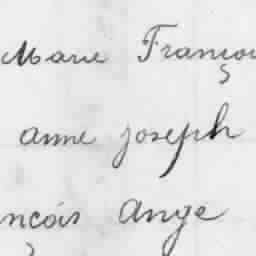 Marie Françoi
anne joseph
ançois Ange